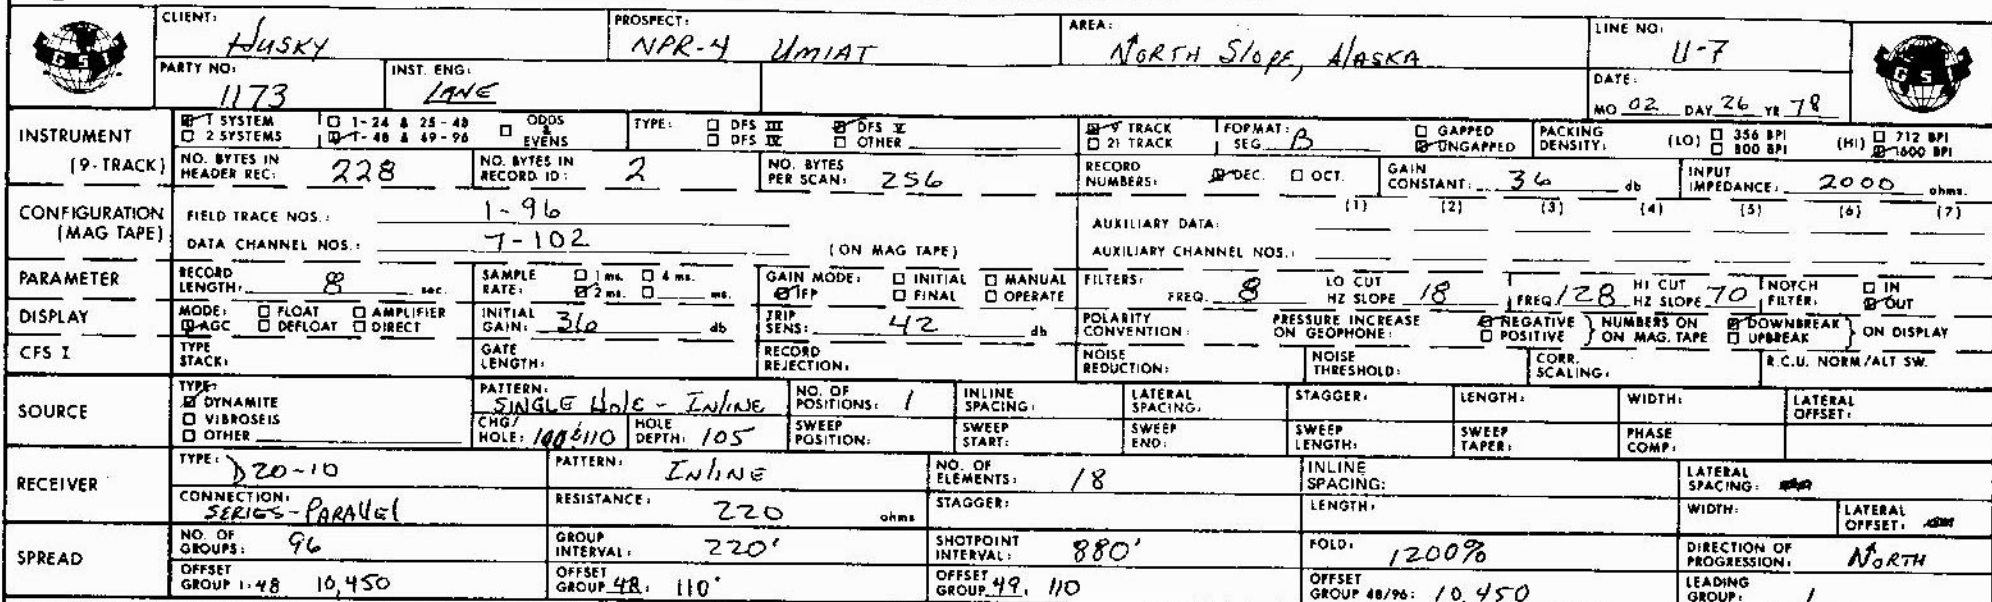 CLIENT: HUSKY PROSPECT: NPR-4 UMIAT AREA: NORTH SLOPE, ALASKA LINE NO: U-7
GSI GSI
PARTY NO: 1173 INST. ENG: LANE DATE: MO 02 DAY 26 YR 78
INSTRUMENT (9-TRACK)
1 SYSTEM 1-24 & 25-48 ODDS & EVENS TYPE: DFS III DFS V 9 TRACK FORMAT: SEG B GAPPED PACKING DENSITY: (LO) 356 BPI (HI) 712 BPI
2 SYSTEMS 1-48 & 49-96 DFS IV OTHER 21 TRACK UNGAPPED 800 BPI 1600 BPI
NO. BYTES IN HEADER REC: 228 NO. BYTES IN RECORD ID: 2 NO. BYTES PER SCAN: 256 RECORD NUMBERS: DEC. OCT. GAIN CONSTANT: 36 db INPUT IMPEDANCE: 2000 ohms.
CONFIGURATION (MAG TAPE)
FIELD TRACE NOS.: 1-96 AUXILIARY DATA: (1) (2) (3) (4) (5) (6) (7)
DATA CHANNEL NOS.: 7-102 (ON MAG TAPE) AUXILIARY CHANNEL NOS.:
PARAMETER RECORD LENGTH: 8 sec. SAMPLE RATE: 1 ms. 4 ms. 2 ms. ms. GAIN MODE: INITIAL MANUAL IFP FINAL OPERATE FILTERS: FREQ. 8 LO CUT HZ SLOPE 18 FREQ 128 HI CUT HZ SLOPE 70 NOTCH FILTER: IN OUT
DISPLAY MODE: FLOAT AMPLIFIER AGC DEFLOAT DIRECT INITIAL GAIN: 36 db TRIP SENS: 42 db POLARITY CONVENTION: PRESSURE INCREASE ON GEOPHONE: NEGATIVE POSITIVE } NUMBERS ON MAG. TAPE DOWNBREAK UPBREAK } ON DISPLAY
CFS I TYPE STACK: GATE LENGTH: RECORD REJECTION: NOISE REDUCTION: NOISE THRESHOLD: CORR. SCALING: R.C.U. NORM/ALT SW.
SOURCE
TYPE: DYNAMITE VIBROSEIS OTHER PATTERN: SINGLE HOLE - INLINE NO. OF POSITIONS: 1 INLINE SPACING: LATERAL SPACING: STAGGER: LENGTH: WIDTH: LATERAL OFFSET:
CHG/HOLE: 110 HOLE DEPTH: 105 SWEEP POSITION: SWEEP START: SWEEP END: SWEEP LENGTH: SWEEP TAPER: PHASE COMP:
RECEIVER
TYPE: D20-10 PATTERN: INLINE NO. OF ELEMENTS: 18 INLINE SPACING: LATERAL SPACING:
CONNECTION: SERIES-PARALLEL RESISTANCE: 220 ohms STAGGER: LENGTH: WIDTH: LATERAL OFFSET:
SPREAD
NO. OF GROUPS: 96 GROUP INTERVAL: 220' SHOTPOINT INTERVAL: 880' FOLD: 1200% DIRECTION OF PROGRESSION: NORTH
OFFSET GROUP 1-48 10,450 OFFSET GROUP 48: 110' OFFSET GROUP 49: 110 OFFSET GROUP 48/96: 10,450 LEADING GROUP: 1